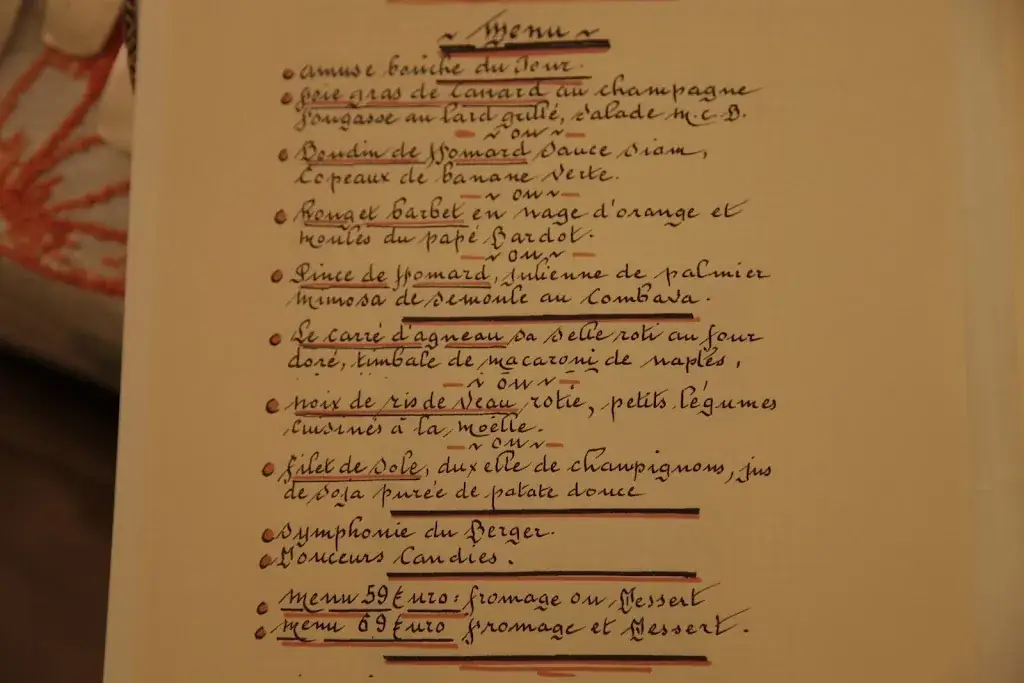 ~ Menu ~
amuse bouche du Jour.
foie gras de Canard au champagne
fougasse au lard grillé, salade m.c.D.
~ ou ~
Boudin de Homard sauce siam,
Copeaux de banane verte.
~ ou ~
Rouget barbet en nage d'orange et
moules du papé Bardot.
~ ou ~
Pince de Homard, Julienne de palmier
mimosa de semoule au Combava.
Le carré d'agneau sa selle roti au four
doré, timbale de macaroni de naples,
~ ou ~
noix de ris de Veau rotie, petits légumes
cuisinés à la moëlle.
~ ou ~
filet de Sole, duxelle de champignons, jus
de soja purée de patate douce
Symphonie du Berger.
Douceurs Candies.
menu 59 Euro: fromage ou Dessert
menu 69 Euro fromage et Dessert.